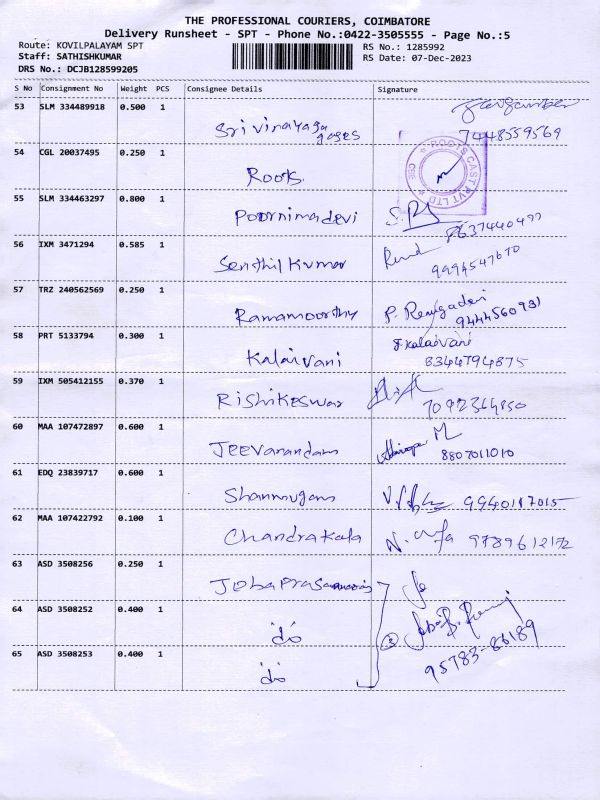 THE PROFESSIONAL COURIERS, COIMBATORE
Delivery Runsheet - SPT - Phone No.:0422-3505555 - Page No.:5
Route: KOVILPALAYAM SPT
RS No.: 1285992
Staff: SATHISHKUMAR
RS Date: 07-Dec-2023
DRS No.: DCJB128599205
S No Consignment No Weight PCS Consignee Details Signature
53 SLM 334489918 0.500 1
Sri Vinayaga gases 7448559569
54 CGL 20037495 0.250 1
Roots. ROOTS CAST PVT LTD CBE
55 SLM 334463297 0.800 1
Poornimadevi
56 IXM 3471294 0.585 1
Senthil Kumar 9994547670
57 TRZ 240562569 0.250 1
Ramamoorthy P. Rengadevi
9444560931
58 PRT 5133794 0.300 1
Kalaivani J. Kalaivani
8344794875
59 IXM 505412155 0.370 1
Rishikeswar 7092364850
60 MAA 107472897 0.600 1
Jeevanandam 8807011010
61 EDQ 23839717 0.600 1
Shanmugam 9940117015
62 MAA 107422792 0.100 1
Chandrakala 9789612172
63 ASD 3508256 0.250 1
64 ASD 3508252 0.400 1
do
95783-86189
65 ASD 3508253 0.400 1
do